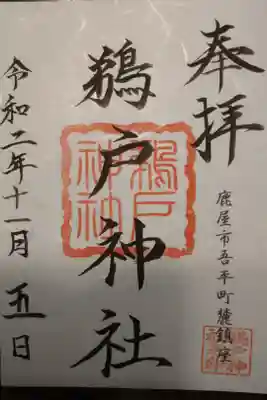 奉拝
鹿屋市吾平町麓鎮座
鵜戸神社
令和二年十一月五日